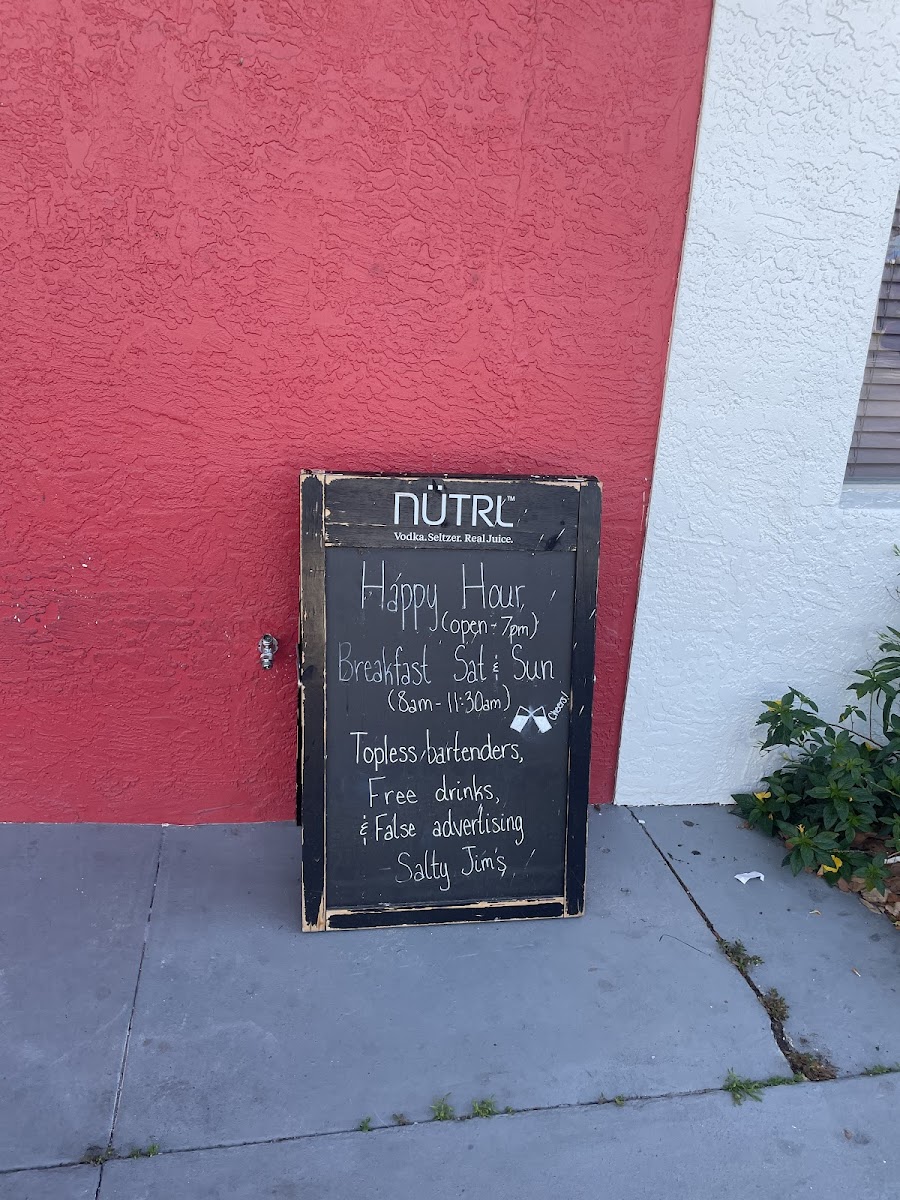 NÜTRL™
Vodka. Seltzer. Real Juice.
Happy Hour
(open - 7pm)
Breakfast Sat & Sun
(8am - 11:30am)
Cheers!
Topless bartenders,
Free drinks,
& False advertising
Salty Jim's